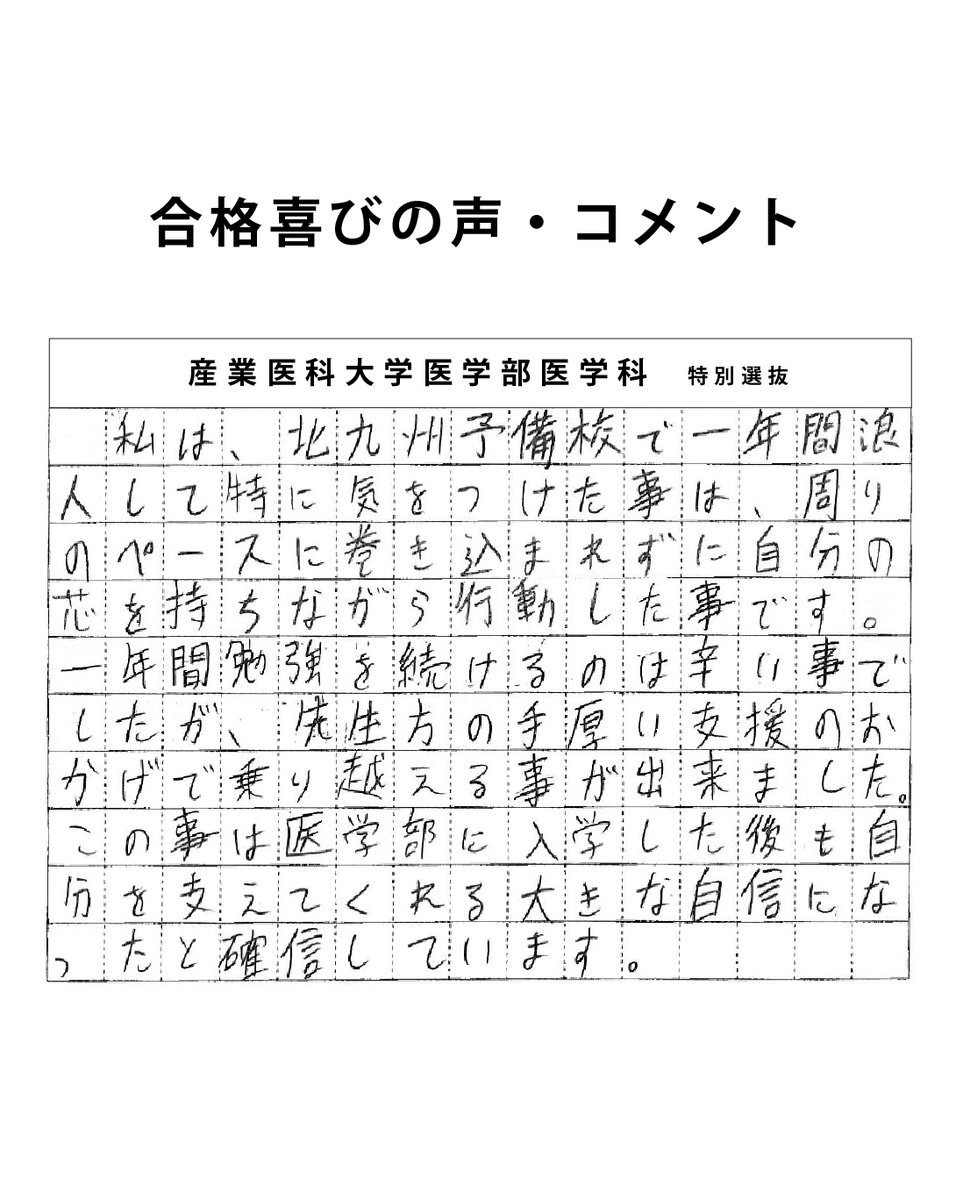 合格喜びの声・コメント
産業医科大学医学部医学科 特別選抜
私は、北九州予備校で一年間浪
人して特に気をつけた事は、周り
のペースに巻き込まれずに自分の
芯を持ちながら行動した事です。
一年間勉強を続けるのは辛い事で
したが、先生方の手厚い支援のお
かげで乗り越える事が出来ました。
この事は医学部に入学した後も自
分を支えてくれる大きな自信にな
ったと確信しています。